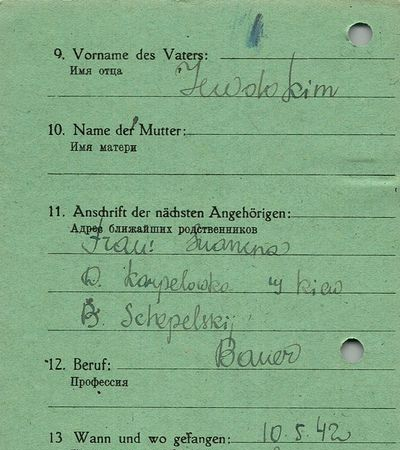 9. Vorname des Vaters:
Имя отца
Jewdokim
10. Name der Mutter:
Имя матери
11. Anschrift der nächsten Angehörigen:
Адрес ближайших родственников
Frau:
D. Karpelowka Kiew
B. Schepelskij
12. Beruf: Bauer
Профессия
13 Wann und wo gefangen: 10.5.42